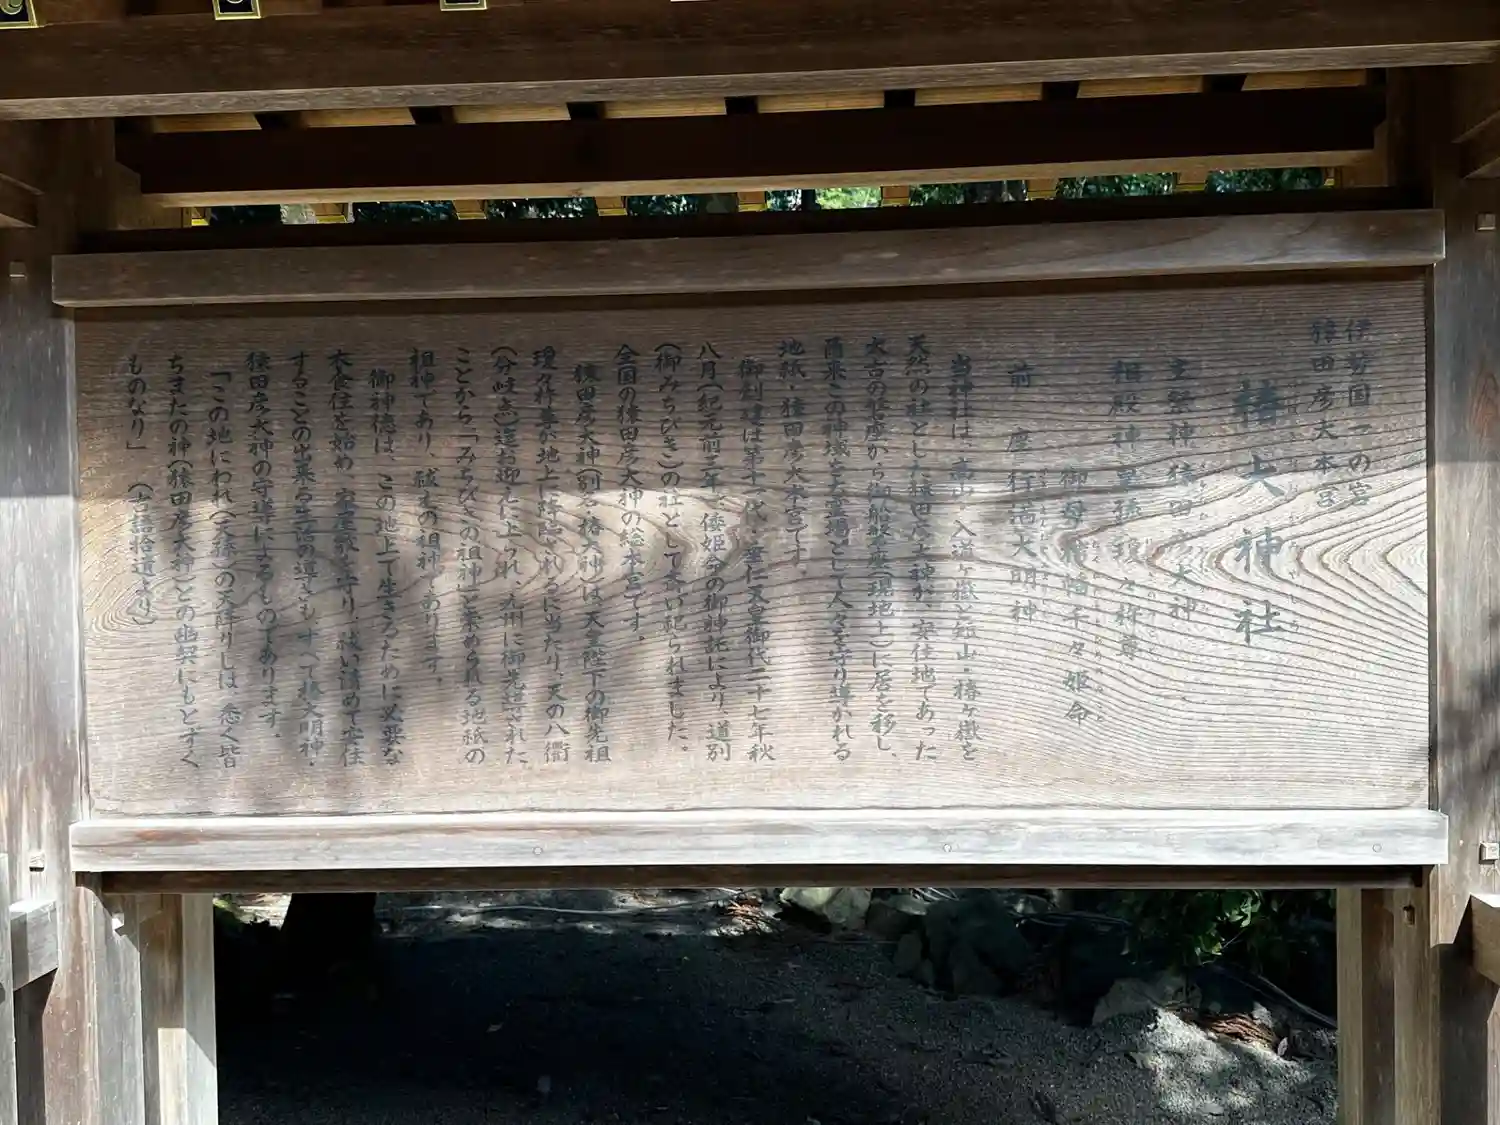 伊勢国一の宮
猿田彦大本宮
椿大神社
主祭神 猿田彦大神
相殿神 皇孫瓊々杵尊
御母 栲幡千々姫命
前座 行満大明神
当神社は、南山、入道ヶ嶽と短山・椿ヶ嶽を
天然の社とした猿田彦大神が、安住地であった
太古の磐座から御船磐座(現地上)に居を移し、
爾来この神域を土霊場として人々を守り導かれる
地祇・猿田彦大本宮です。
御創建は第十一代・垂仁天皇御代二十七年秋
八月(紀元前三年)、倭姫命の御神託により、道別
(御みちびき)の社として斎い祀られました。
全国の猿田彦大神の総本宮です。
猿田彦大神(別名・椿大神)は、天皇陛下の御先祖
瓊々杵尊が地上に降臨されるに当たり、天の八衢
(分岐点)迄お迎えに上られ、九州に御先導された
ことから「みちびきの祖神」と崇められる地祇の
祖神であり、祓えの祖神であります。
御神徳は、この地上で生きるために必要な
衣食住を始め、家屋敷を守り、祓い清めて安住
することの出来る生活の導きも、すべて椿大明神・
猿田彦大神の守導によるものであります。
「この地にわれ(天孫)の天降りしは、悉く皆
ちまたの神(猿田彦大神)との幽契にもとずく
ものなり」 (古語拾遺より)